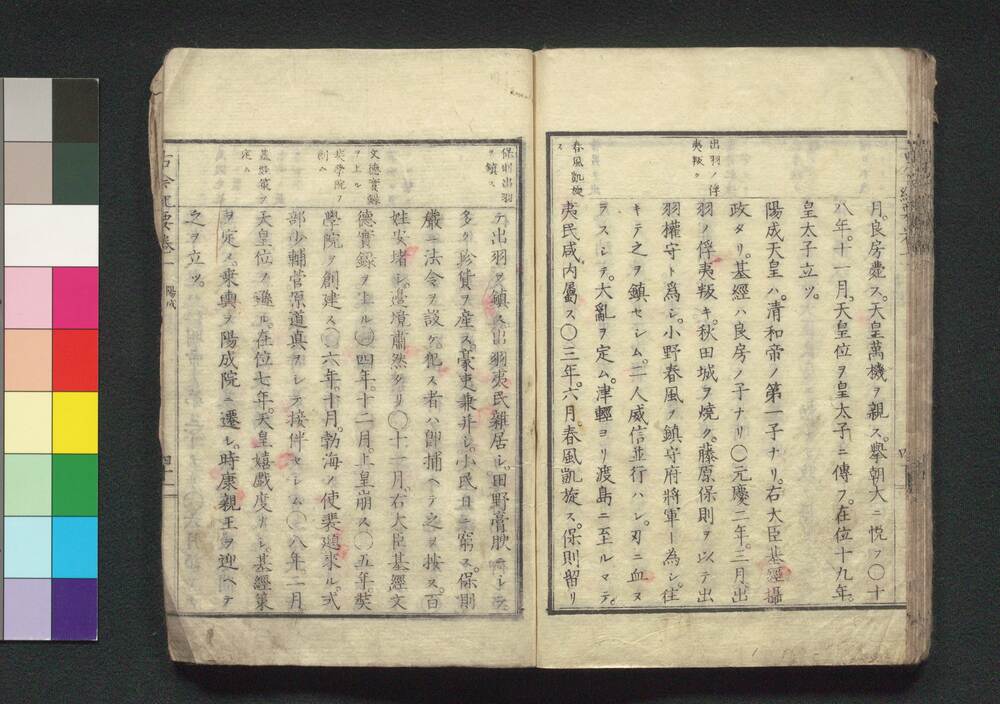 月。良房薨ス。天皇萬機ヲ親ス。擧朝大ニ悦フ〇十
八年。十一月。天皇位ヲ皇太子ニ傳フ。在位十九年。
皇太子立ツ。
陽成天皇ハ。清和帝ノ第一子ナリ。右大臣基經攝
政タリ。基經ハ良房ノ子ナリ〇元慶二年。三月。出
羽ノ俘夷叛キ。秋田城ヲ燒ク。藤原保則ヲ以テ出
羽權守ト爲シ。小野春風ヲ鎮守府將軍ト為シ。往
キテ之ヲ鎮セシム。二人威信並行ハシ。刃ニ血ヌ
ラスシテ。大亂ヲ定ム。津輕ヨリ渡島ニ至ルマテ。
夷民咸内屬ス〇三年。六月春風凱旋ス。保則留リ
出羽ノ俘
夷叛ク
春風凱旋
ス
テ出羽ヲ鎮ス。出羽夷民雜居シ。田野膏腴ニシテ。
多ク珍貨ヲ産ス。豪吏兼并シ。小民日ニ窮ス。保則
嚴ニ法令ヲ設ケ犯ス者ハ即捕ヘテ之ヲ按ス。百
姓安堵シ。邊境肅然タリ〇十一月。右大臣基經文
德實録ヲ上ル〇四年。十二月。上皇崩ス〇五年。奘
學院ヲ創建ス〇六年。十月。勃海ノ使裴頲來ル。式
部少輔菅原道真ヲシテ接伴セシム〇八年。二月
天皇位ヲ遜ル。在位七年。天皇嬉戲度ナシ。基經策
ヲ定メ。乘輿ヲ陽成院ニ遷シ。時康親王ヲ迎ヘテ
之ヲ立ツ。
保則出羽
ヲ鎮ス
文德實録
ヲ上ル
奘學院ヲ
創ム
基經策ヲ
定ム
陽成